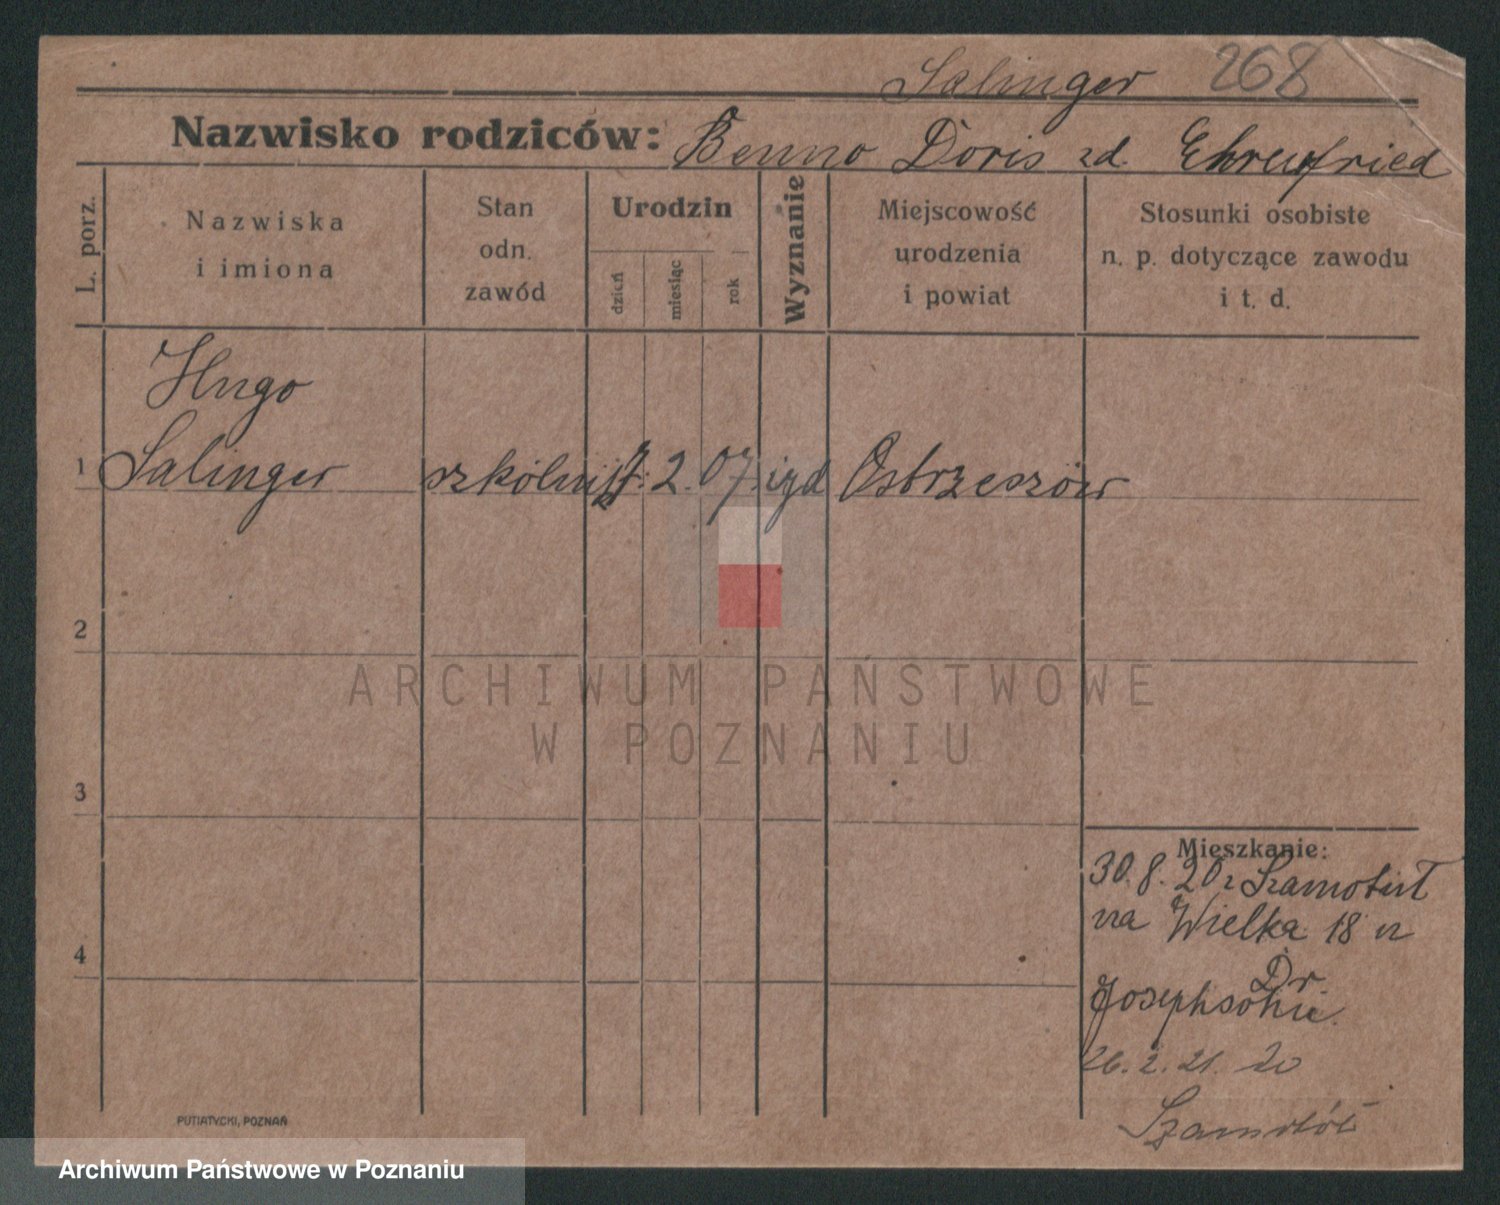 Salinger 268
Nazwisko rodziców: Benno Doris zd. Ehrenfried
L. porz.
Nazwiska
i imiona
Stan
odn.
zawód
Urodzin
dzień
miesiąc
rok
Wyznanie
Miejscowość
urodzenia
i powiat
Stosunki osobiste
n. p. dotyczące zawodu
i t. d.
Hugo
1 Salinger 2. 07. izd Ostrzeszów
2
3
4
ARCHIWUM PAŃSTWOWE
W POZNANIU
Mieszkanie:
30. 8. 20 z
na Wielka 18 u
Dr.
26. 2. 21. do
PUTIATYCKI, POZNAŃ
Archiwum Państwowe w Poznaniu